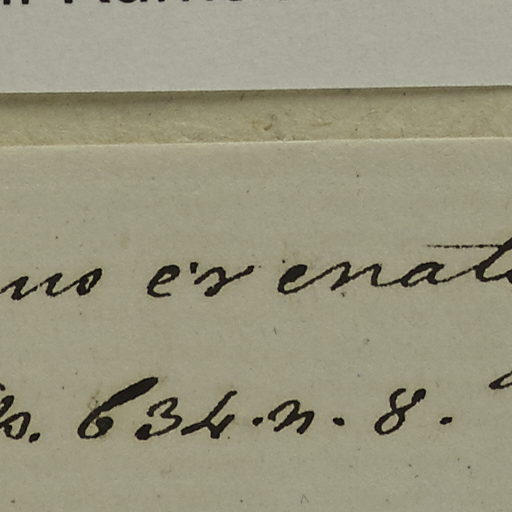 nus crenat
s. 634. n. 8.